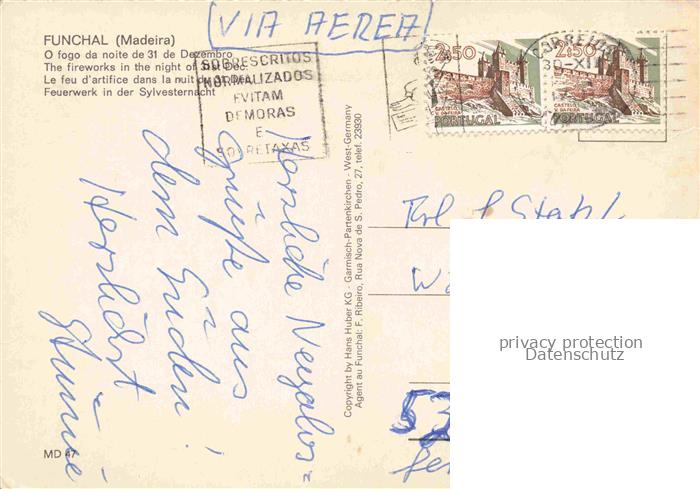 FUNCHAL (Madeira)
O fogo da noite de 31 de Dezembro
The fireworks in the night of 31st Dec.
Le feu d'artifice dans la nuit du 31 Dec.
Feuerwerk in der Sylvesternacht
VIA AEREA
SOBRESCRITOS
NORMALIZADOS
EVITAM
DEMORAS
E
SOBRETAXAS
2$50
CASTELO
V. DA FEIRA
PORTUGAL
CORREIOS
30-XII
2$50
CASTELO
V. DA FEIRA
PORTUGAL
Herzliche Neujahrs=
grüße aus
dem Süden!
Herzlichst
Copyright by Hans Huber KG - Garmisch-Partenkirchen - West-Germany
Agent au Funchal: F. Ribeiro, Rua Nova de S. Pedro, 27, telef. 23930
Frl.
privacy protection
Datenschutz
53
MD 47